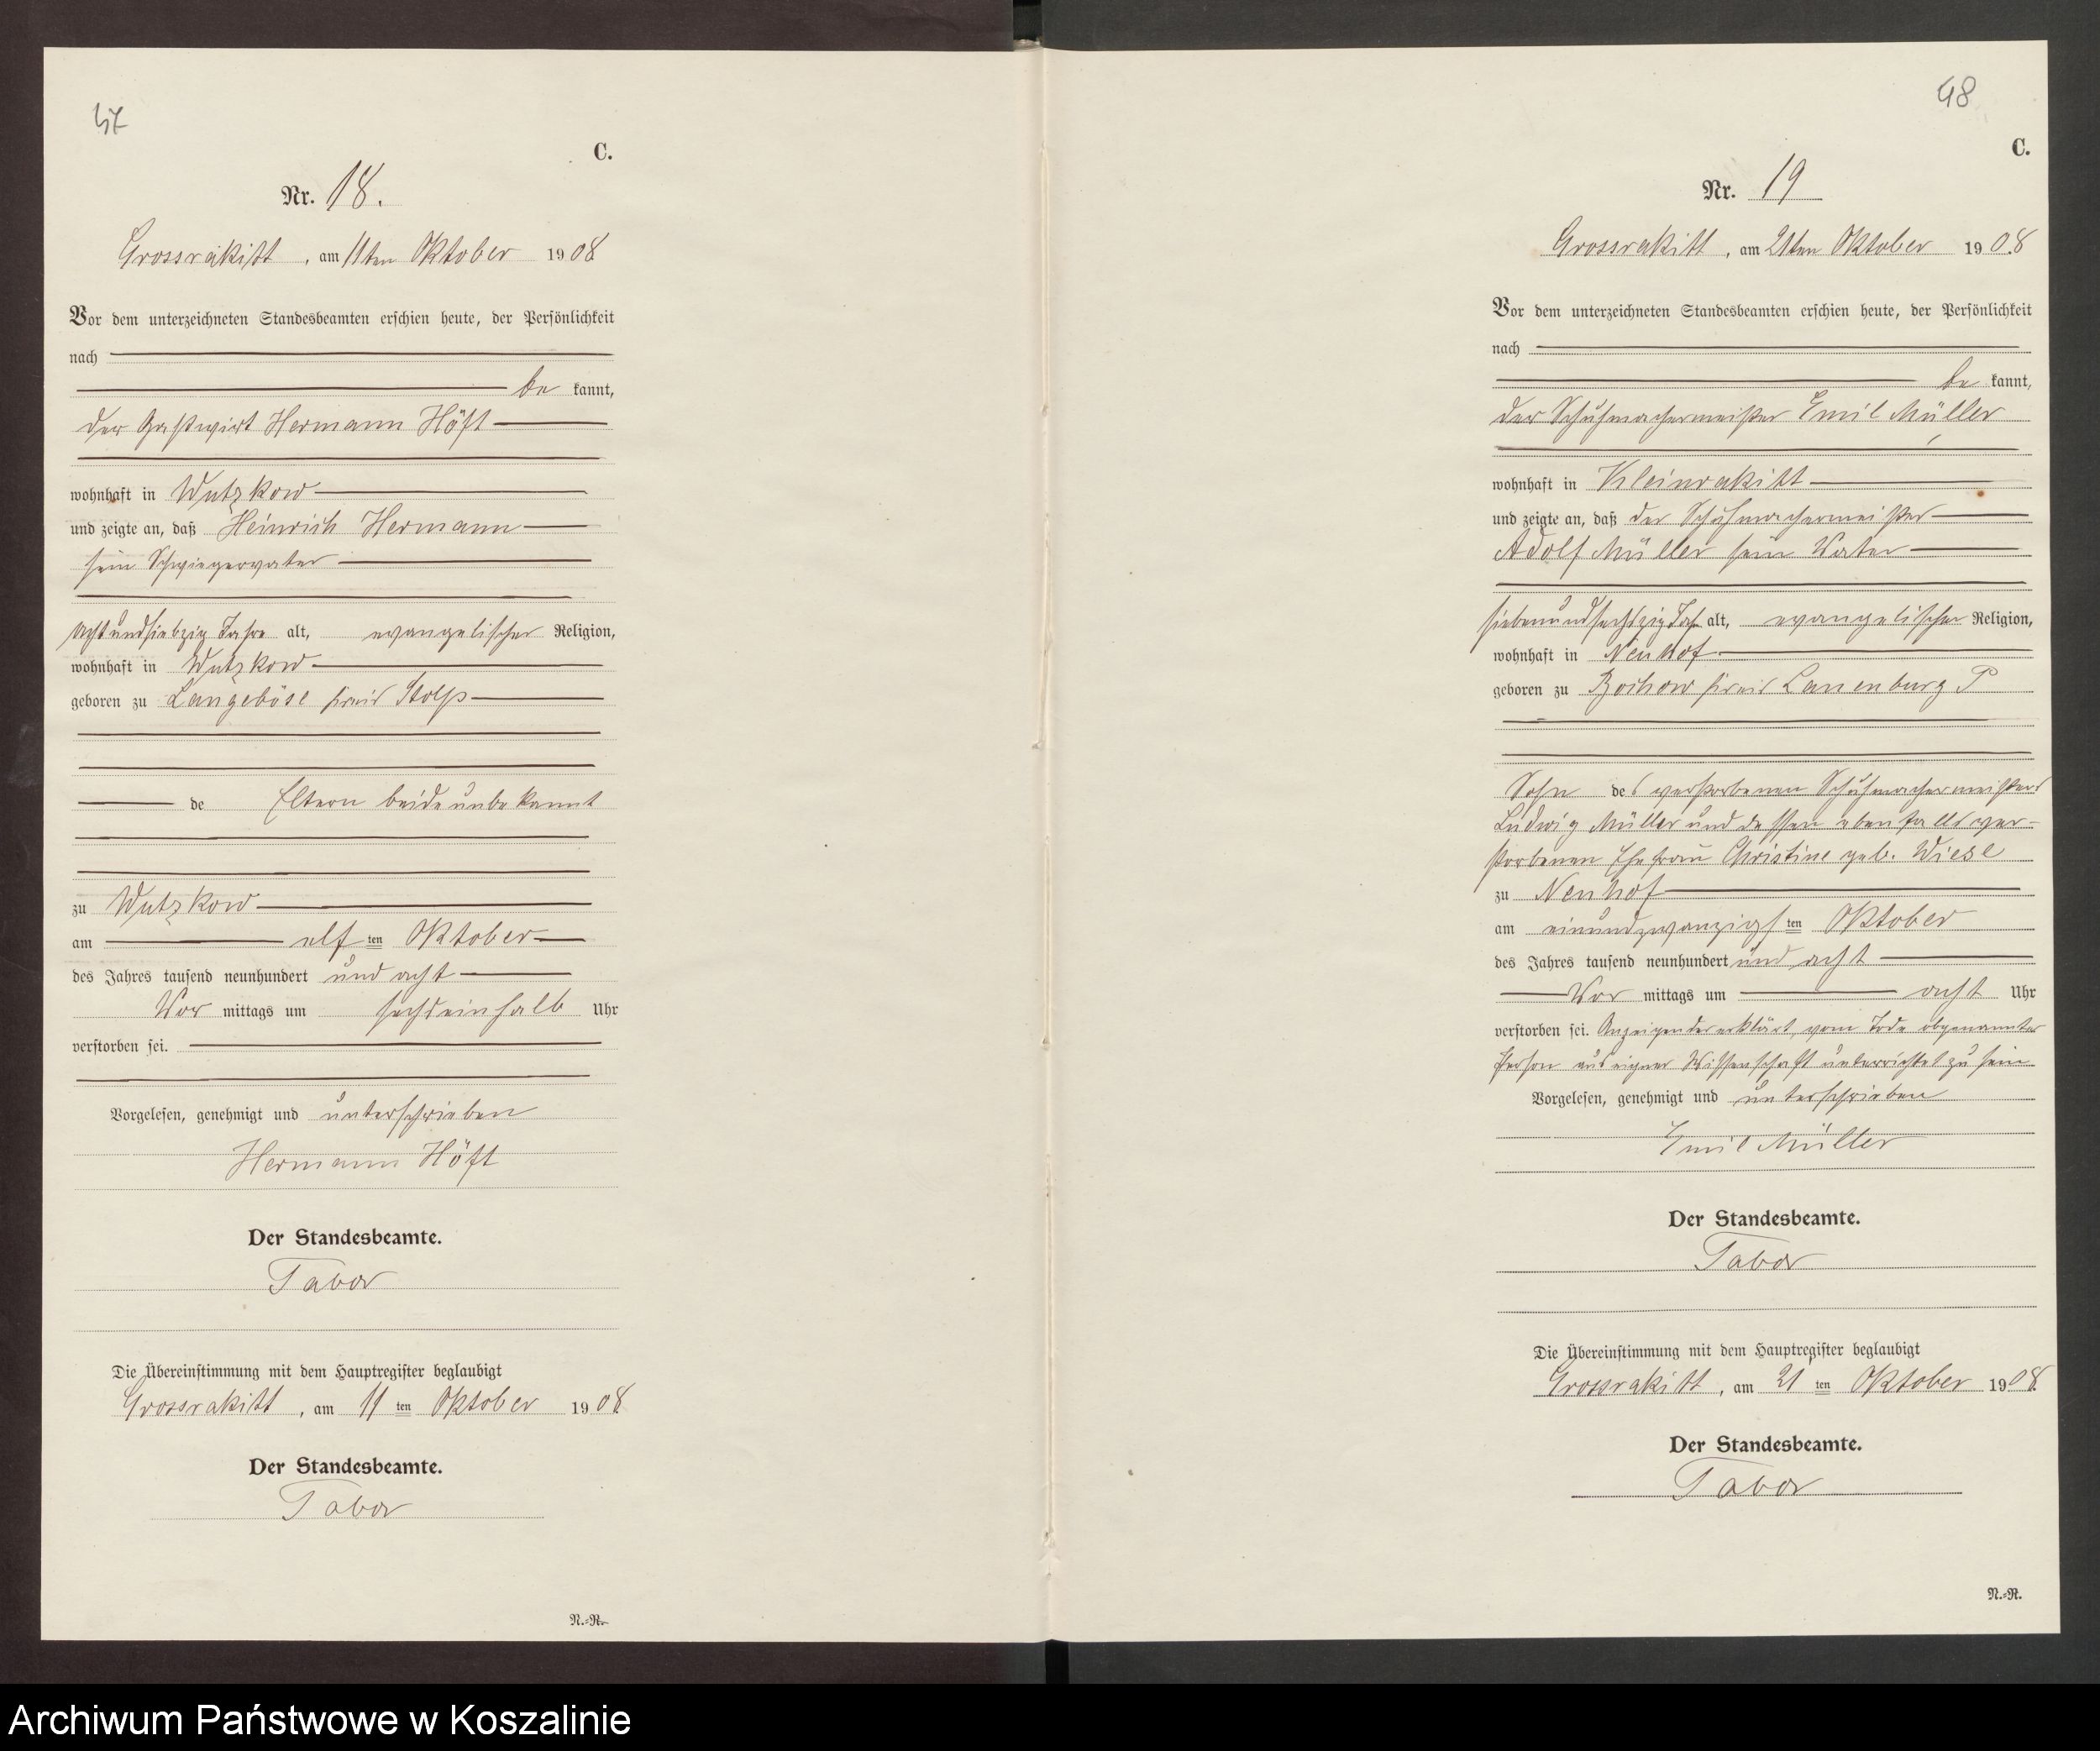 47
C.
Nr. 18.
Grossrakitt, am 11ten Oktober 1908
Vor dem unterzeichneten Standesbeamten erschien heute, der Persönlichkeit
nach
be kannt,
der Gastwirt Hermann Höft
wohnhaft in Wutzkow
und zeigte an, daß Heinrich Hermann
sein Schwiegervater
achtundsiebzig Jahre alt, evangelischer Religion,
wohnhaft in Wutzkow
geboren zu Langeböse Kreis Stolp
de Eltern beide unbekannt
zu Wutzkow
am elf ten Oktober
des Jahres tausend neunhundert und acht
Vor mittags um sechseinhalb Uhr
verstorben sei.
Vorgelesen, genehmigt und unterschrieben
Hermann Höft
Der Standesbeamte.
Tabor
Die Übereinstimmung mit dem Hauptregister beglaubigt
Grossrakitt, am 11 ten Oktober 1908.
Der Standesbeamte.
Tabor
N.-R.
48
C.
Nr. 19
Grossrakitt, am 21ten Oktober 1908
Vor dem unterzeichneten Standesbeamten erschien heute, der Persönlichkeit
nach
be kannt,
der Schuhmachermeister Emil Müller
wohnhaft in Kleinrakitt
und zeigte an, daß der Schuhmachermeister
Adolf Müller sein Vater
siebenundsechszig Jahr alt, evangelischer Religion,
wohnhaft in Neuhof
geboren zu Bochow Kreis Lauenburg P
Sohn des verstorbenen Schuhmachermeisters
Ludwig Müller und dessen ebenfalls ver-
storbenen Ehefrau Christine geb. Wiese
zu Neuhof
am einundzwanzigs ten Oktober
des Jahres tausend neunhundert und acht
Vor mittags um acht Uhr
verstorben sei. Anzeigender erklärt, vom Tode obgenannter
Person aus eigner Wissenschaft unterrichtet zu sein
Vorgelesen, genehmigt und unterschrieben
Emil Müller
Der Standesbeamte.
Tabor
Die Übereinstimmung mit dem Hauptregister beglaubigt
Grossrakitt, am 21 ten Oktober 1908.
Der Standesbeamte.
Tabor
N.-R.
Archiwum Państwowe w Koszalinie